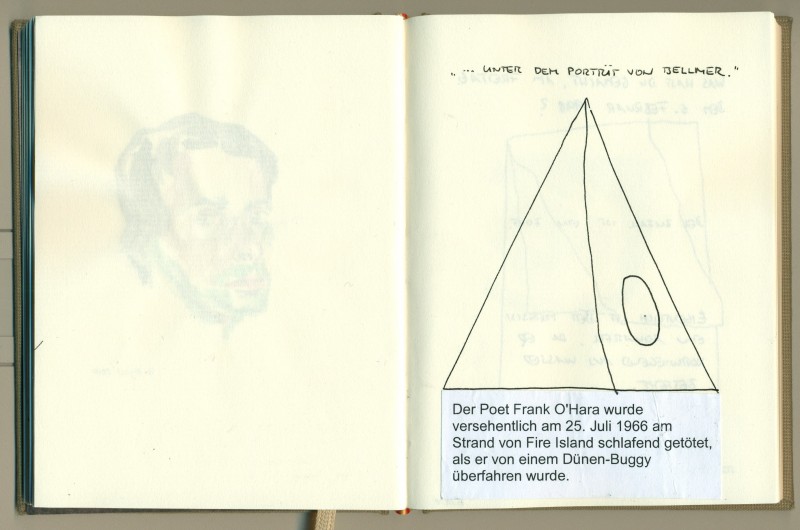 "... UNTER DEM PORTRÄT VON BELLMER."
Der Poet Frank O'Hara wurde
versehentlich am 25. Juli 1966 am
Strand von Fire Island schlafend getötet,
als er von einem Dünen-Buggy
überfahren wurde.